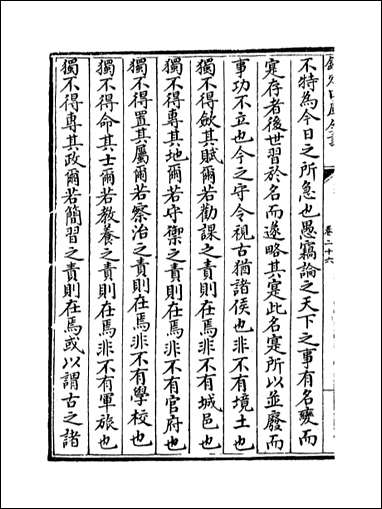 欽定四庫全書
卷二十六
不特為今日之所急也愚竊論之天下之事有名變而
寔存者後世習於名而遂略其寔此名寔所以並廢而
事功不立也今之守令視古猶諸侯也非不有境土也
獨不得歛其賦爾若勸課之責則在焉非不有城邑也
獨不得專其地爾若守禦之責則在焉非不有官府也
獨不得置其屬爾若察治之責則在焉非不有學校也
獨不得命其士爾若教養之責則在焉非不有軍旅也
獨不得專其政爾若簡習之責則在焉或以謂古之諸